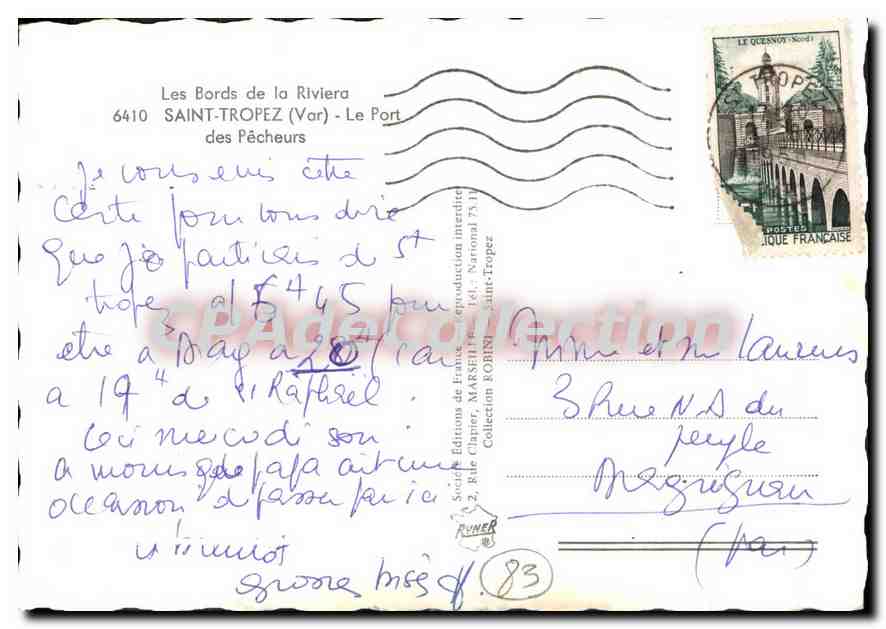 Les Bords de la Riviera
6410 SAINT-TROPEZ (Var) - Le Port
des Pêcheurs
Je vous envis cette
Carte pour vous dire
que je partirais de St
tropez a 15 H 45 pour
etre a Drag a 20 H car
a 19 H de St Raphaël.
Ceci mercredi soir
a moins que papa ait une
occasion de passer par ici
grosses bises
Société Éditions de France - Reproduction interdite
2, Rue Clapier, MARSEILLE - Tél.: National 75.11
Collection ROBINI Saint-Tropez
RUNER
LE QUESNOY-(Nord)
POSTES
LIQUE FRANÇAISE
ST TROPEZ
Mme et Mr Laurens
3 Rue N.D du
peuple
Draguignan
(Var)
83
CPAdeCollection